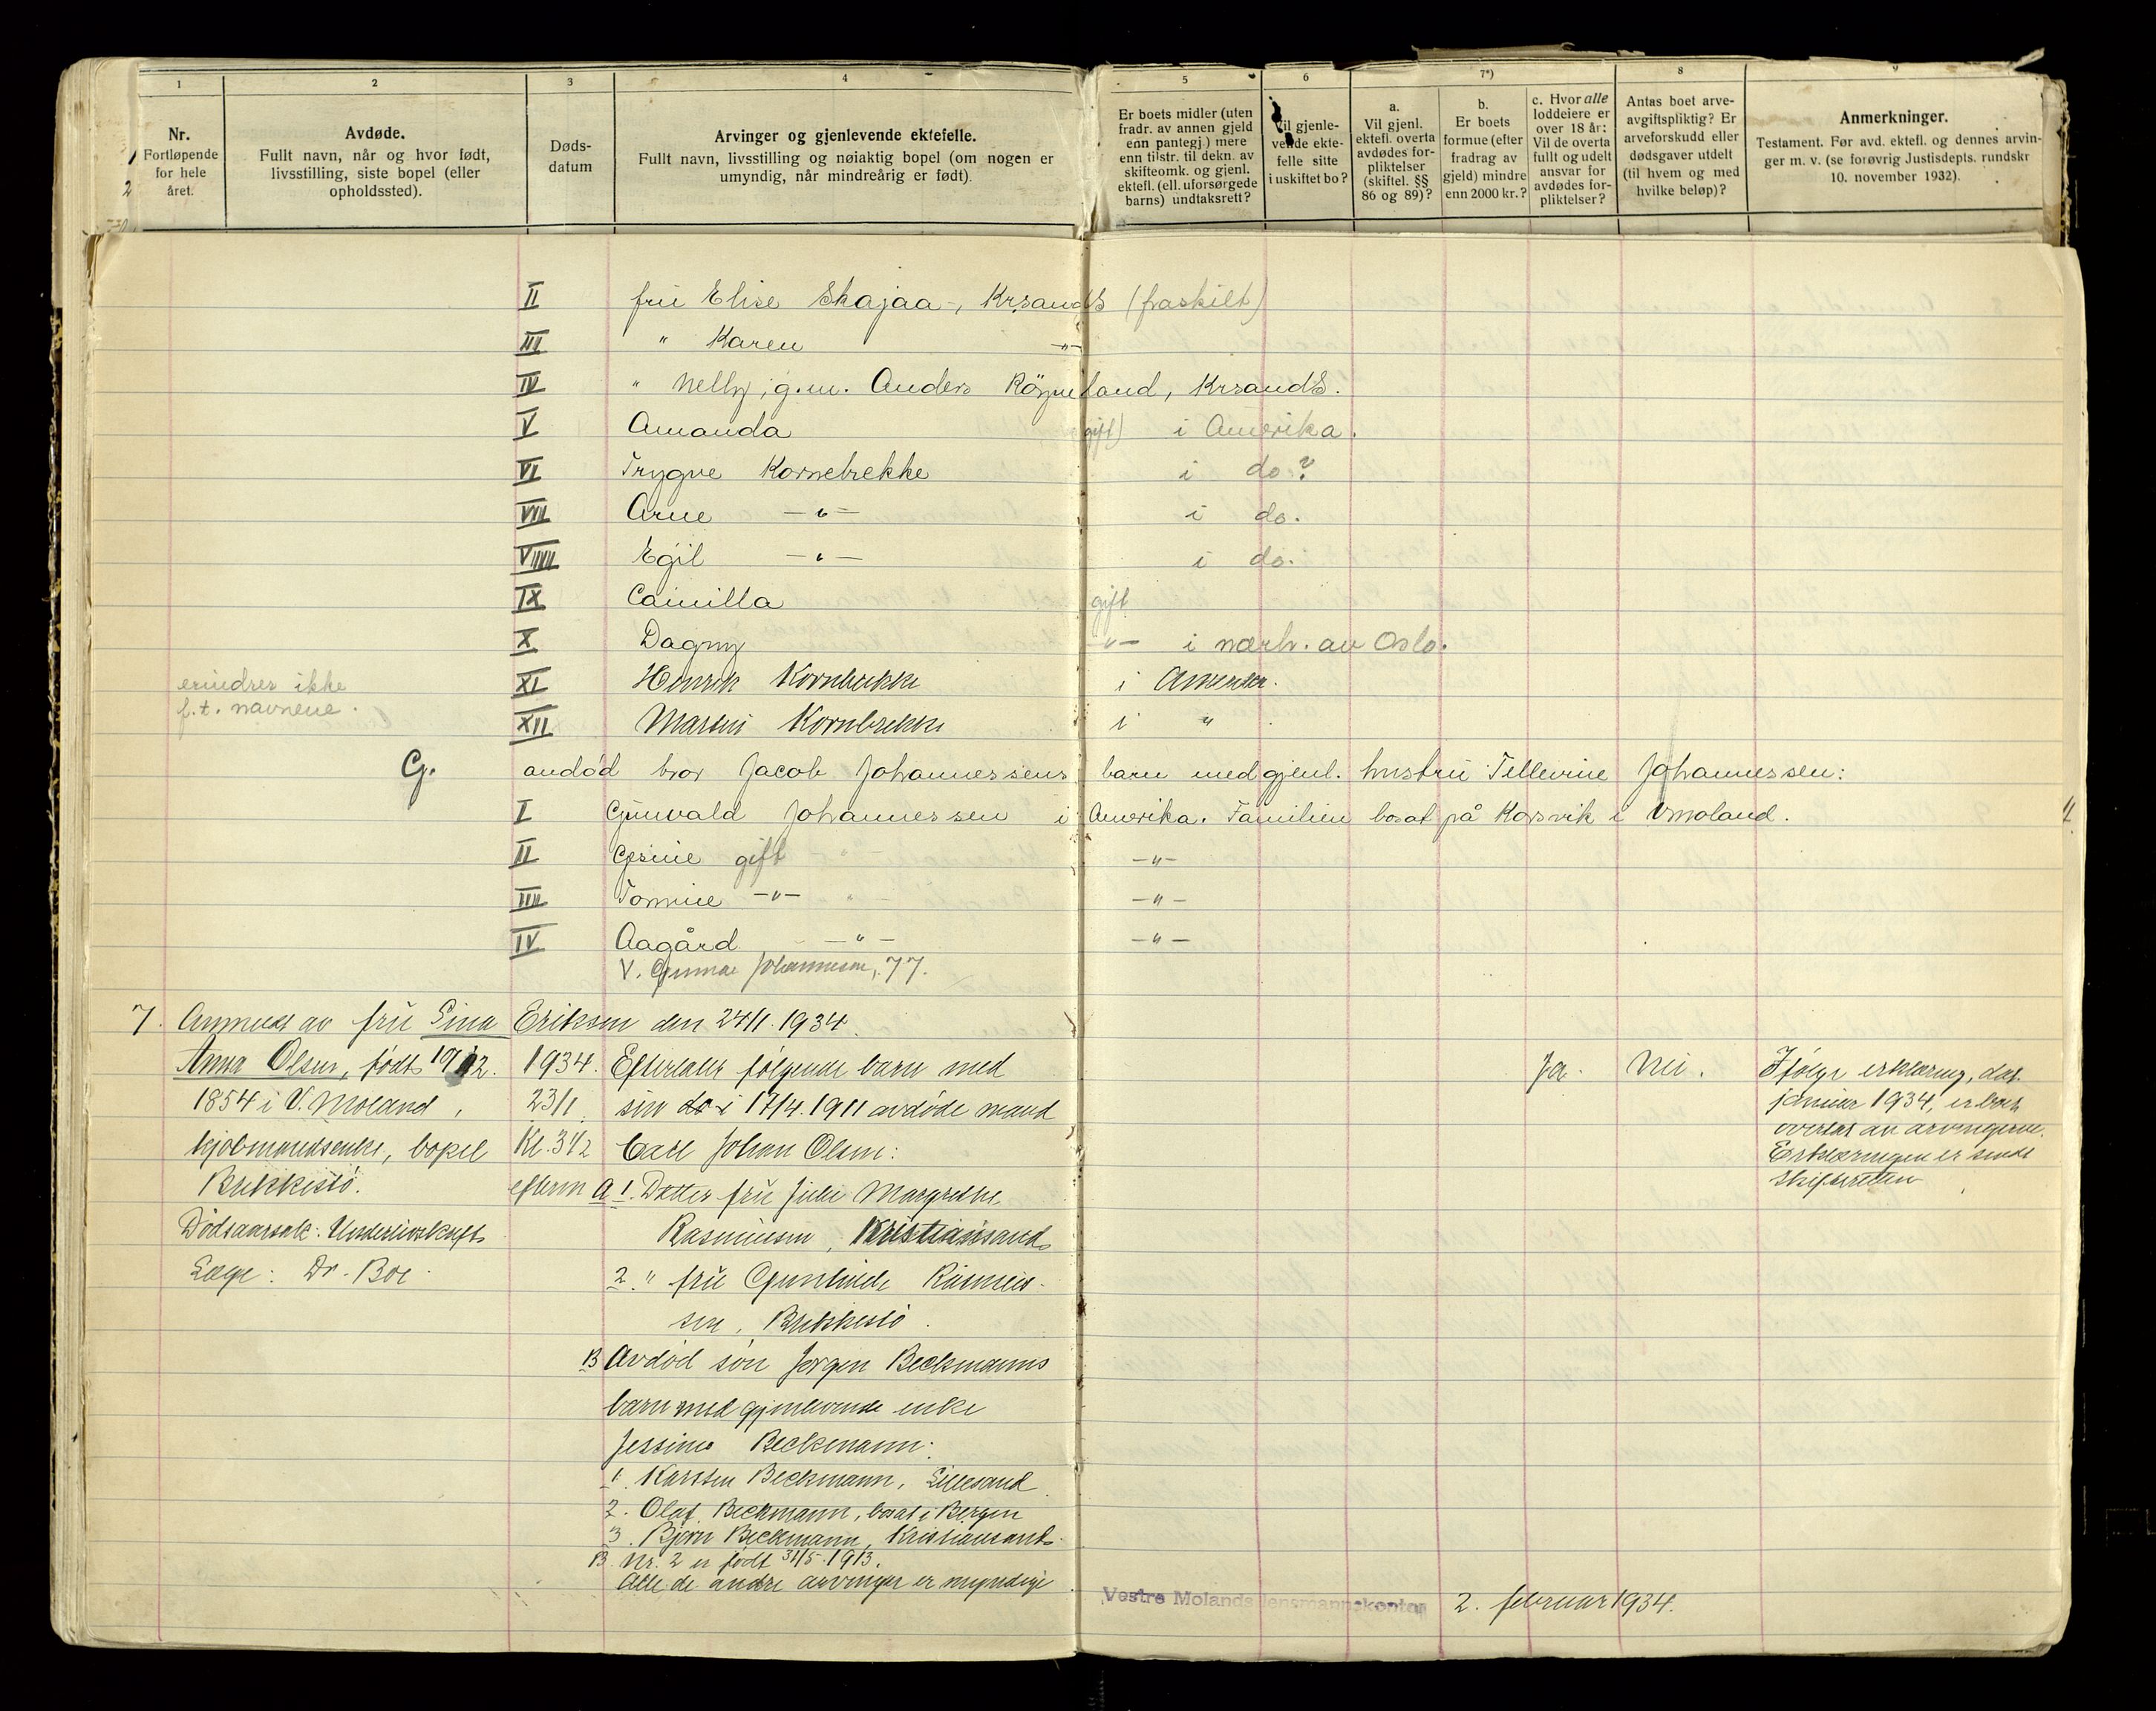 1
2
3
4
5
6
7*)
8
9
Nr.
Fortløpende
for hele
året.
Avdøde.
Fullt navn, når og hvor født,
livsstilling, siste bopel (eller
opholdssted).
Døds-
datum
Arvinger og gjenlevende ektefelle.
Fullt navn, livsstilling og nøiaktig bopel (om nogen er
umyndig, når mindreårig er født).
Er boets midler (uten
fradr. av annen gjeld
enn pantegj.) mere
enn tilstr. til dekn. av
skifteomk. og gjenl.
ektefl. (ell. uforsørgede
barns) undtaksrett?
Vil gjenle-
vende ekte-
felle sitte
i uskiftet bo?
a.
Vil gjenl.
ektefl. overta
avdødes for-
pliktelser
(skiftel. §§
86 og 89)?
b.
Er boets
formue (efter
fradrag av
gjeld) mindre
enn 2000 kr.?
c. Hvor alle
loddeiere er
over 18 år:
Vil de overta
fullt og udelt
ansvar for
avdødes for-
pliktelser?
Antas boet arve-
avgiftspliktig? Er
arveforskudd eller
dødsgaver utdelt
(til hvem og med
hvilke beløp)?
Anmerkninger.
Testament. Før avd. ektefl. og dennes arvin-
ger m. v. (se forøvrig Justisdepts. rundskr
10. november 1932).
II fru Elise Skajaa, Krsand S (fraskilt)
III " Karen -"-
IV " Nelly, g.m. Anders Röyneland, Krsand S.
V Amanda (gift) i Amerika.
VI Trygve Kornebrekke i do?
VII Arne -"- i do.
VIIII Egil -"- i do.
IX Camilla gift
X Dagny -"- i nærh. av Oslo.
erindrer ikke
f.t. navnene.
XI Henrik Kornbrekke i Amerika.
XII Martin Kornbrekke i "
G. avdød bror Jacob Johannessens barn med gjenl. hustru Tellevine Johannessen:
I Gunvald Johannessen i Amerika. Familien bosat på Korsvik i V moland.
II Gesine gift " -"-
III Tomine -"- " -"-
IV Aagård -"- -"-
V. Gunnar Johannessen, 77.
7. Anmeldt av fru Sina Eriksen den 24/1. 1934.
Anna Olsen, født 19/12. 1934. Efterlater følgende barn med
1854 i V. Moland, 23/1. sin do i 17/4. 1911 avdøde mand
kjøbmandsenke, bopel Kl. 3 1/2 Carl Johan Olsen:
Brekkestö. efterm A 1. Datter fru Julie Margrethe
Rasmussen, Kristiansand
Dødsaarsak: Underlivskræft
Læge: Dr. Boe.
2. " fru Gunhilde Rasmus-
sen, Brekkestö.
B Avdød søn Jørgen Beckmanns
barn med gjenlevende enke
Jessine Beckmann:
1. Karsten Beckmann, Lillesand
2. Olaf Beckmann, bosat i Bergen
3. Bjørn Beckmann, Kristiansand.
B. Nr. 2 er født 31/5. 1913.
Alle de andre arvinger er myndige
Ja. Nei.
Ifølge erklæring, dat.
januar 1934, er boet
overtat av arvingerne.
Erklæringen er sendt
skifteretten
Vestre Molands lensmannskontor 2. februar 1934.